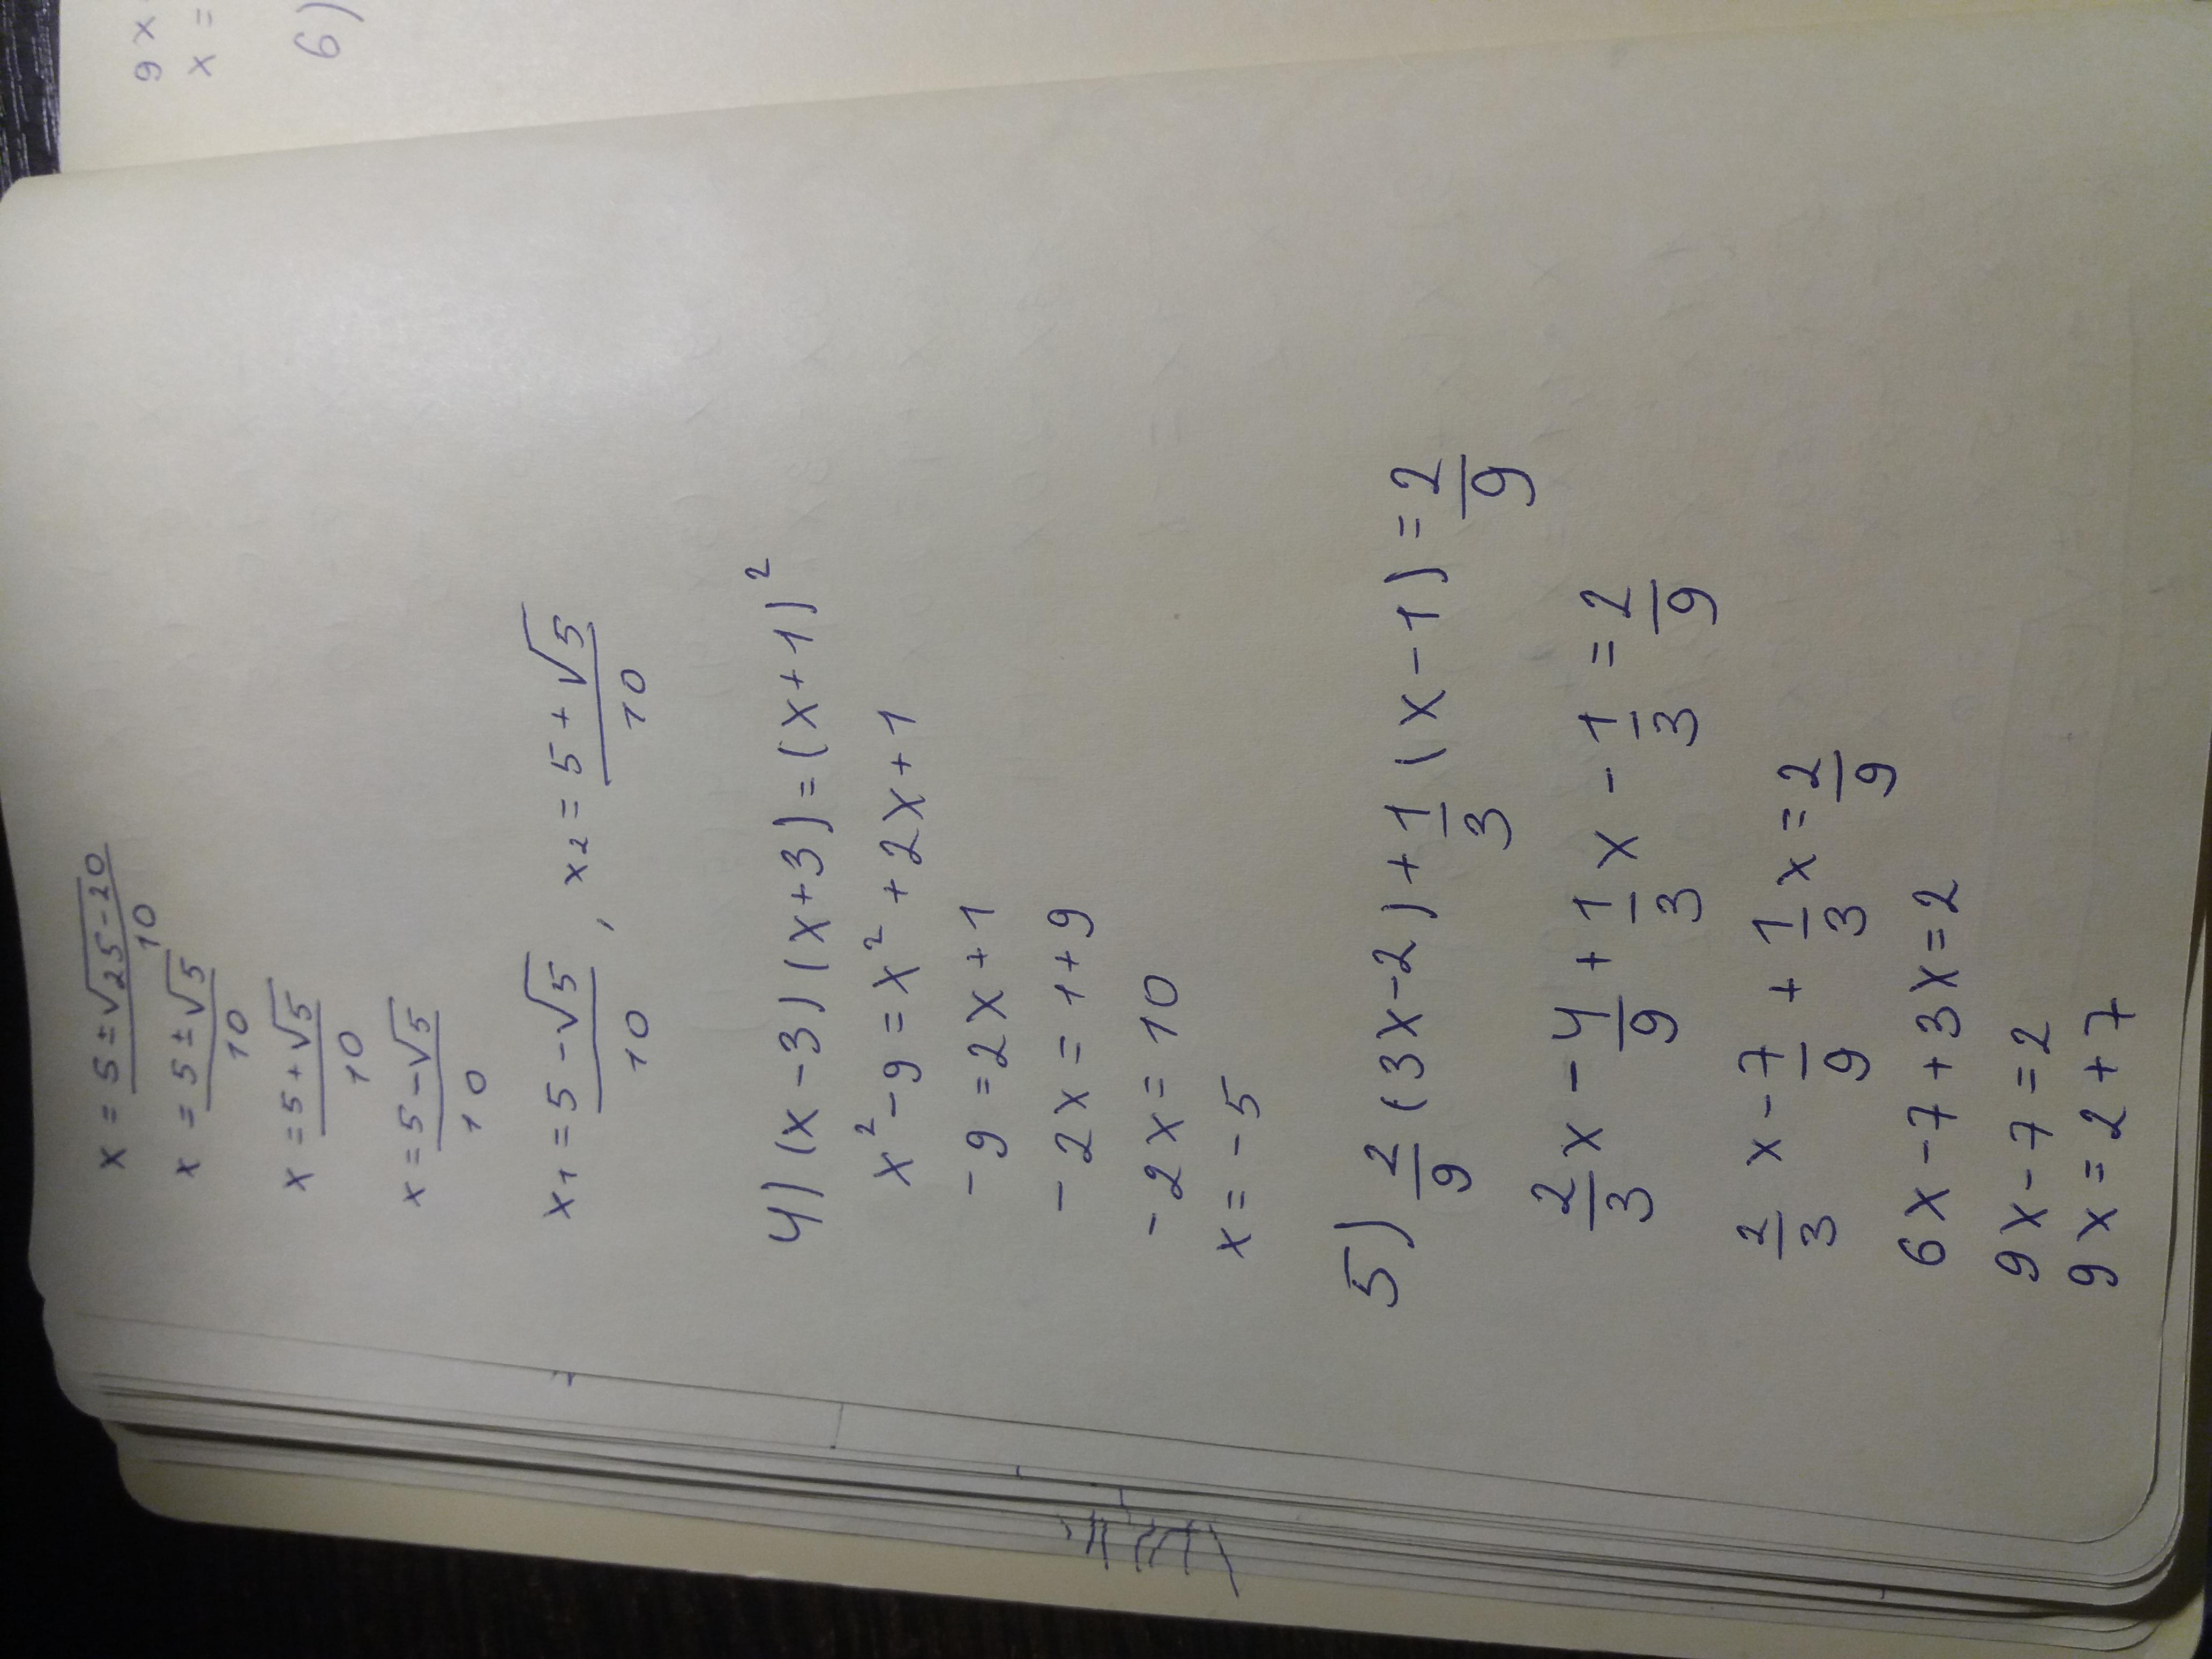 x = 5 ± √25 - 20 / 10
x = 5 ± √5 / 10
x = 5 + √5 / 10
x = 5 - √5 / 10
x1 = 5 - √5 / 10 , x2 = 5 + √5 / 10
4) (x - 3) (x + 3) = (x + 1)²
x² - 9 = x² + 2x + 1
- 9 = 2x + 1
- 2x = 1 + 9
- 2x = 10
x = - 5
5) 2/9 (3x - 2) + 1/3 (x - 1) = 2/9
2/3 x - 4/9 + 1/3 x - 1/3 = 2/9
2/3 x - 7/9 + 1/3 x = 2/9
6x - 7 + 3x = 2
9x - 7 = 2
9x = 2 + 7
9x
x =
6)